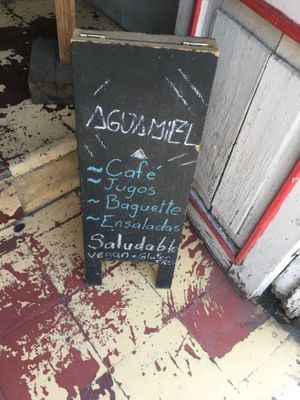 AGUAMIEL
~ Café
~ Jugos
~ Baguette
~ Ensaladas
Saludable
vegan • Gluten
FREE